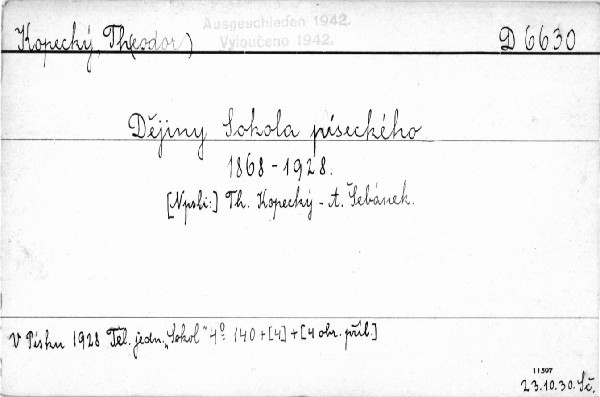 Ausgeschieden 1942.
Vyloučeno 1942.
Kopecký, Th(eodor)
D 6630
Dějiny Sokola píseckého
1868-1928.
[Npsli:] Th. Kopecký - A. Šebánek.
V Písku 1928 Těl. jedn. „Sokol" 4° 140+[4]+[4 obr. příl.]
11597
23.10.30. Sč.